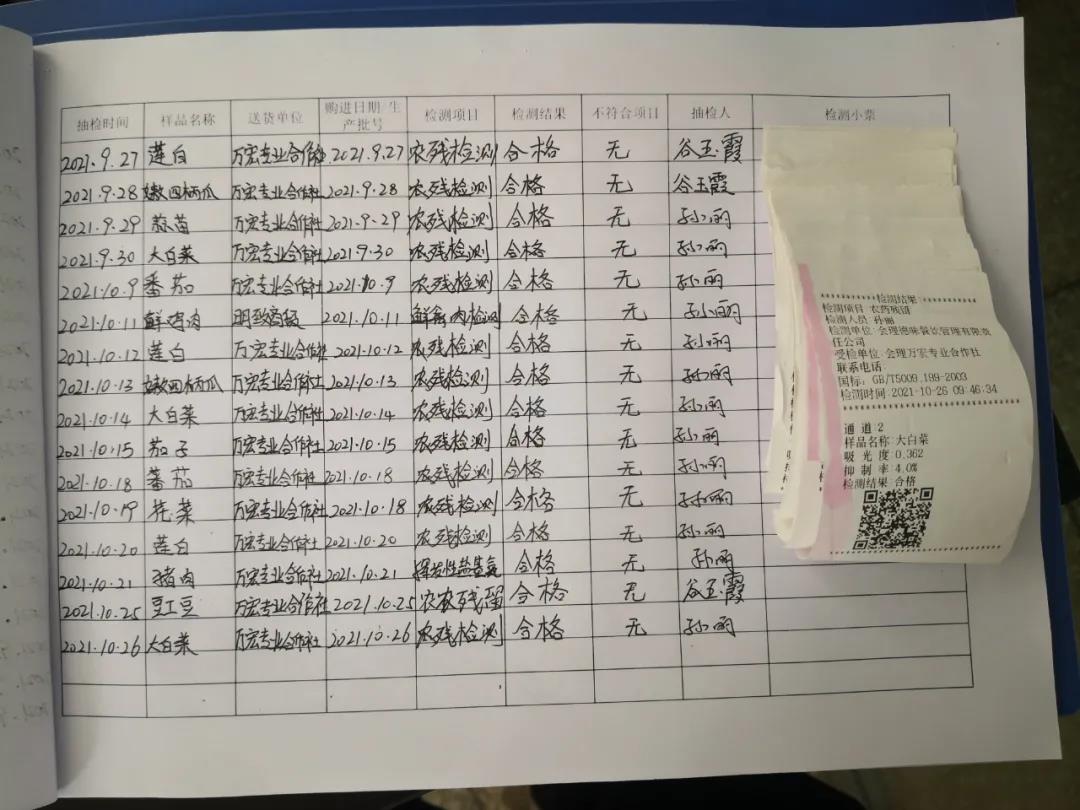 抽检时间 样品名称 送货单位 购进日期/生产批号 检测项目 检测结果 不符合项目 抽检人 检测小票
2021.9.27 莲白 万宏专业合作社 2021.9.27 农残检测 合格 无 谷玉霞
2021.9.28 嫩四柄瓜 万宏专业合作社 2021.9.28 农残检测 合格 无 谷玉霞
2021.9.29 蒜苗 万宏专业合作社 2021.9.29 农残检测 合格 无 孙丽
2021.9.30 大白菜 万宏专业合作社 2021.9.30 农残检测 合格 无 孙丽
2021.10.9 番茄 万宏专业合作社 2021.10.9 农残检测 合格 无 孙丽
2021.10.11 鲜鸡肉 2021.10.11 鲜禽肉检测 合格 无 孙丽
2021.10.12 莲白 万宏专业合作社 2021.10.12 农残检测 合格 无 孙丽
2021.10.13 嫩四柄瓜 万宏专业合作社 2021.10.13 农残检测 合格 无 孙丽
2021.10.14 大白菜 万宏专业合作社 2021.10.14 农残检测 合格 无 孙丽
2021.10.15 茄子 万宏专业合作社 2021.10.15 农残检测 合格 无 孙丽
2021.10.18 番茄 万宏专业合作社 2021.10.18 农残检测 合格 无 孙丽
2021.10.19 花菜 万宏专业合作社 2021.10.18 农残检测 合格 无 孙丽
2021.10.20 莲白 万宏专业合作社 2021.10.20 农残检测 合格 无 孙丽
2021.10.21 猪肉 万宏专业合作社 2021.10.21 挥发性盐基氮 合格 无 孙丽
2021.10.25 豇豆 万宏专业合作社 2021.10.25 农农残留 合格 无 谷玉霞
2021.10.26 大白菜 万宏专业合作社 2021.10.26 农残检测 合格 无 孙丽
检测结果
检测项目:农药残留
检测人员:孙丽
检测单位:会理德味餐饮管理有限责
任公司
受检单位:会理万宏专业合作社
联系电话:
国标:GB/T5009.199-2003
检测时间:2021-10-26 09:46:34
通道:2
样品名称:大白菜
吸光度:0.362
抑制率:4.0%
检测结果:合格